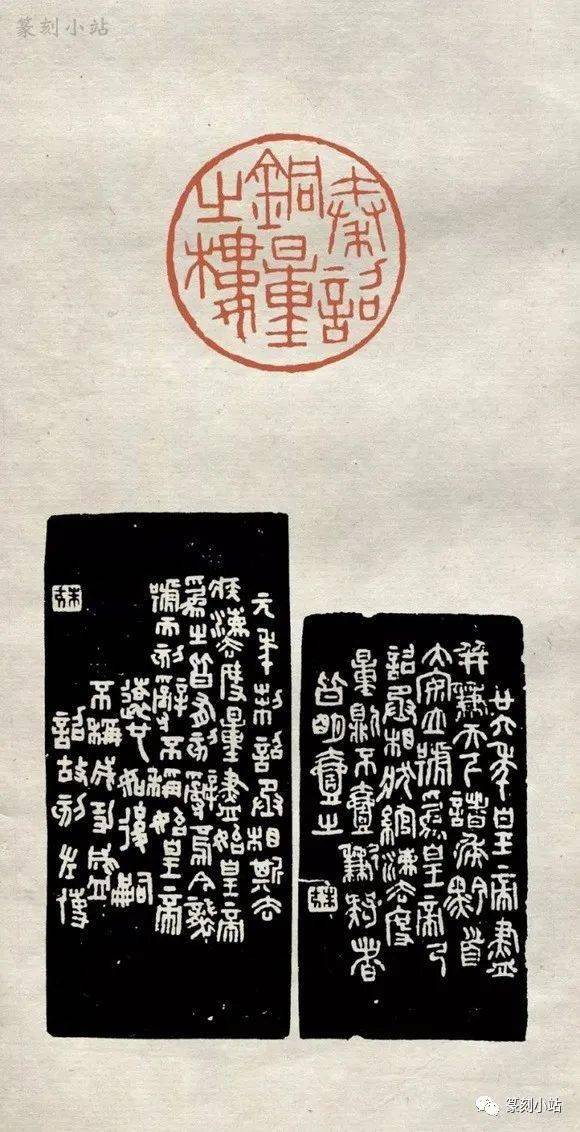 篆刻小站
秦詔
銅量
之樓
廿六年皇帝盡
并兼天下諸侯黔首
大安立號爲皇帝乃
詔丞相狀綰灋度
量則不壹歉疑者
皆明壹之
元年制詔丞相斯去
疾灋度量盡始皇帝
爲之皆有刻辭焉今襲
號而刻辭不稱始皇帝
遠也如後嗣
不稱成功盛
詔故刻左使
篆刻小站